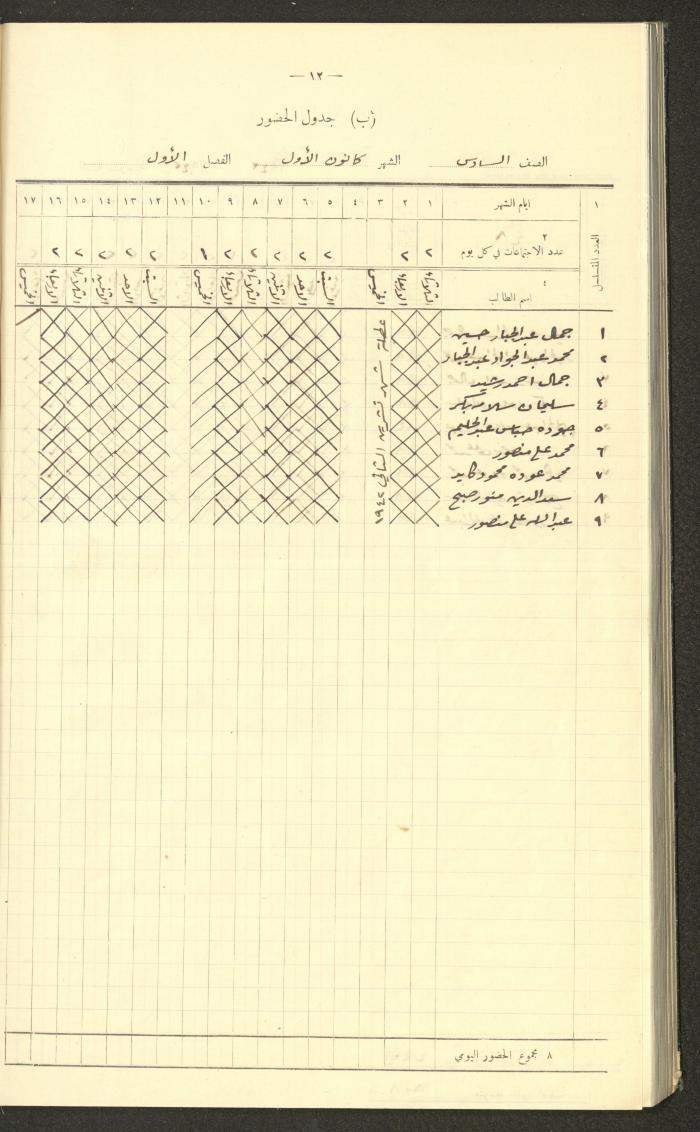 — ١٢ —
(ب) جدول الحضور
الصف السادس الشهر كانون الأول الفصل الأول
١ ايام الشهر ١ ٢ ٣ ٤ ٥ ٦ ٧ ٨ ٩ ١٠ ١١ ١٢ ١٣ ١٤ ١٥ ١٦ ١٧
العدد المتسلسل
٢
عدد الاجتماعات في كل يوم ٢ ٢ ٢ ٢ ٢ ٢ ٢ ١ ٢ ٢ ٢ ٢ ٢
٤
اسم الطالب الثلاثاء الاربعاء الخميس السبت الاحد الاثنين الثلاثاء الاربعاء الخميس السبت الاحد الاثنين الثلاثاء الاربعاء الخميس
عطلة شهر تشرين الثاني ١٩٤٢
١ جمال عبد الجبار حسين
٢ محمد عبد الجواد عبد الجبار
٣ جمال احمد رشيد
٤ سليمان سلامه بكر
٥ جوده عباس عبد الحليم
٦ محمد علي منصور
٧ محمد عوده محمود كايد
٨ سعد الدين منور صبح
٩ عبد الله علي منصور
٨ مجموع الحضور اليومي